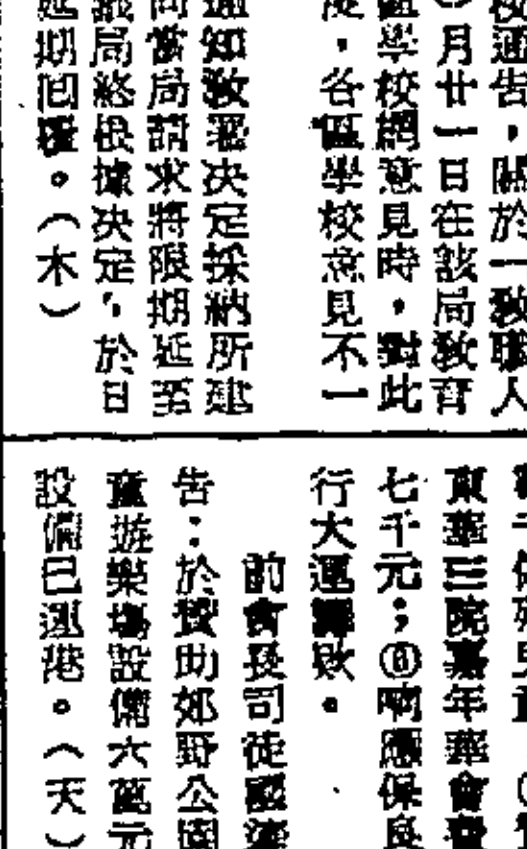 校通告，關於一教職人
月廿一日在該局教育
區學校網意見時，對此
，各區學校意見不一
通知教署決定採納所建
向當局請求將限期延至
議局終根據決定，於日
延期回覆。（木）
東華三院嘉年華會費
七千元；⑥响應保良
行大運籌款。
前會長司徒國
告：於資助郊野公園
童遊樂場設備六萬元
設備已運港。（天）